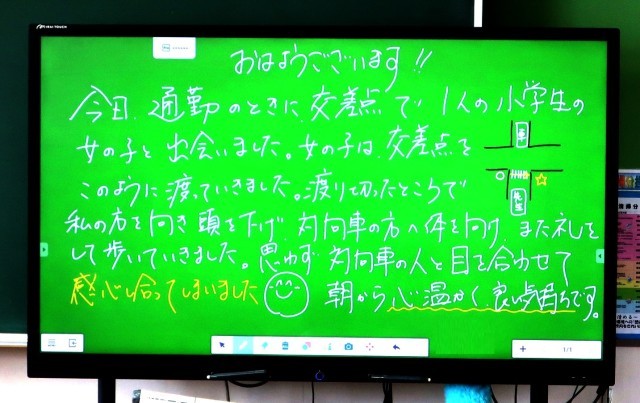 おはようございます!!
今日、通勤のときに、交差点で、1人の小学生の
女の子と出会いました。女の子は、交差点を
このように渡っていきました。渡り切ったところで
私の方を向き頭を下げ、対向車の方へ体を向け、また礼を
して歩いていきました。思わず対向車の人と目を合わせて
感心し合ってしまいました
朝から心温かく、良い気持ちです。
車
1/1